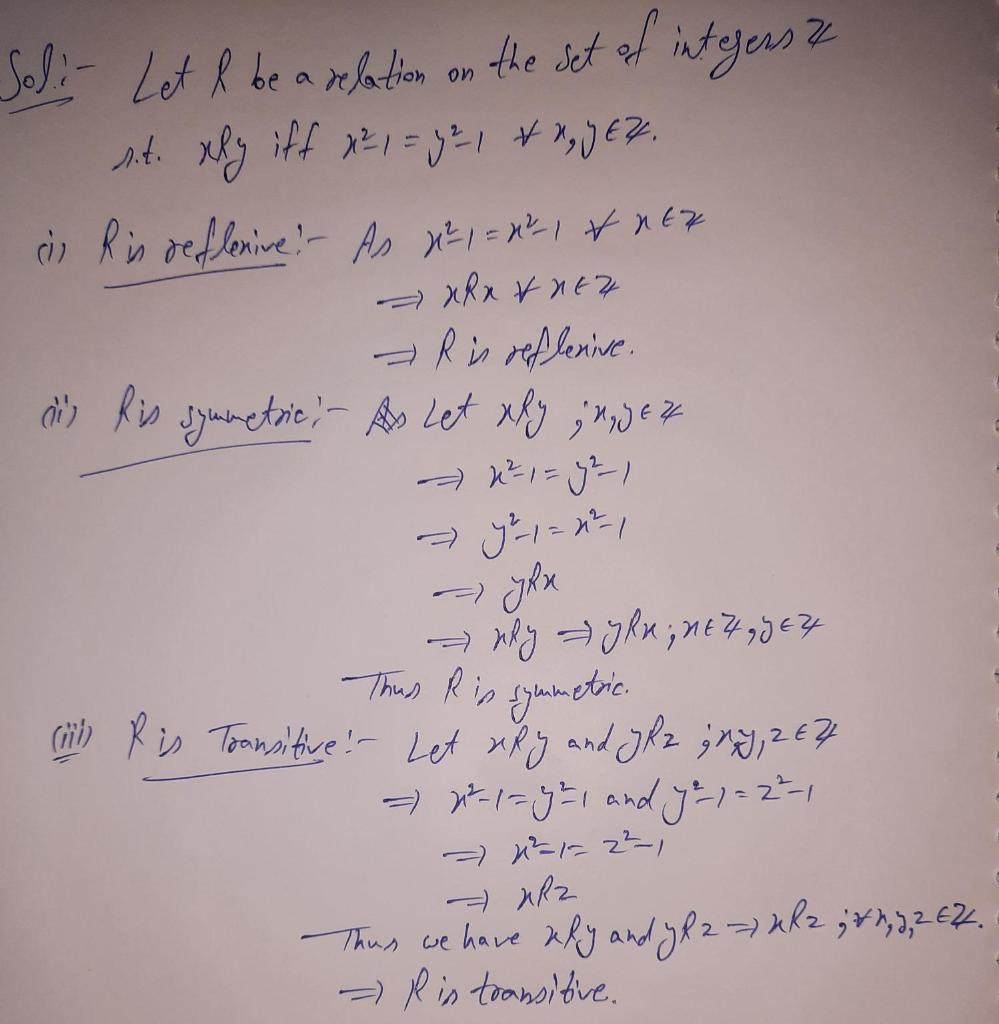 Sol:- Let R be a relation on the set of integers ℤ
s.t. xRy iff x²-1 = y²-1 ∀ x, y ∈ ℤ.
(i) R is reflexive:- As x²-1 = x²-1 ∀ x ∈ ℤ
⇒ xRx ∀ x ∈ ℤ
⇒ R is reflexive.
(ii) R is symmetric:- Let xRy ; x, y ∈ ℤ
⇒ x²-1 = y²-1
⇒ y²-1 = x²-1
⇒ yRx
⇒ xRy ⇒ yRx ; x ∈ ℤ, y ∈ ℤ
Thus R is symmetric.
(iii) R is Transitive:- Let xRy and yRz ; x, y, z ∈ ℤ
⇒ x²-1 = y²-1 and y²-1 = z²-1
⇒ x²-1 = z²-1
⇒ xRz
Thus we have xRy and yRz ⇒ xRz ; ∀ x, y, z ∈ ℤ.
⇒ R is transitive.